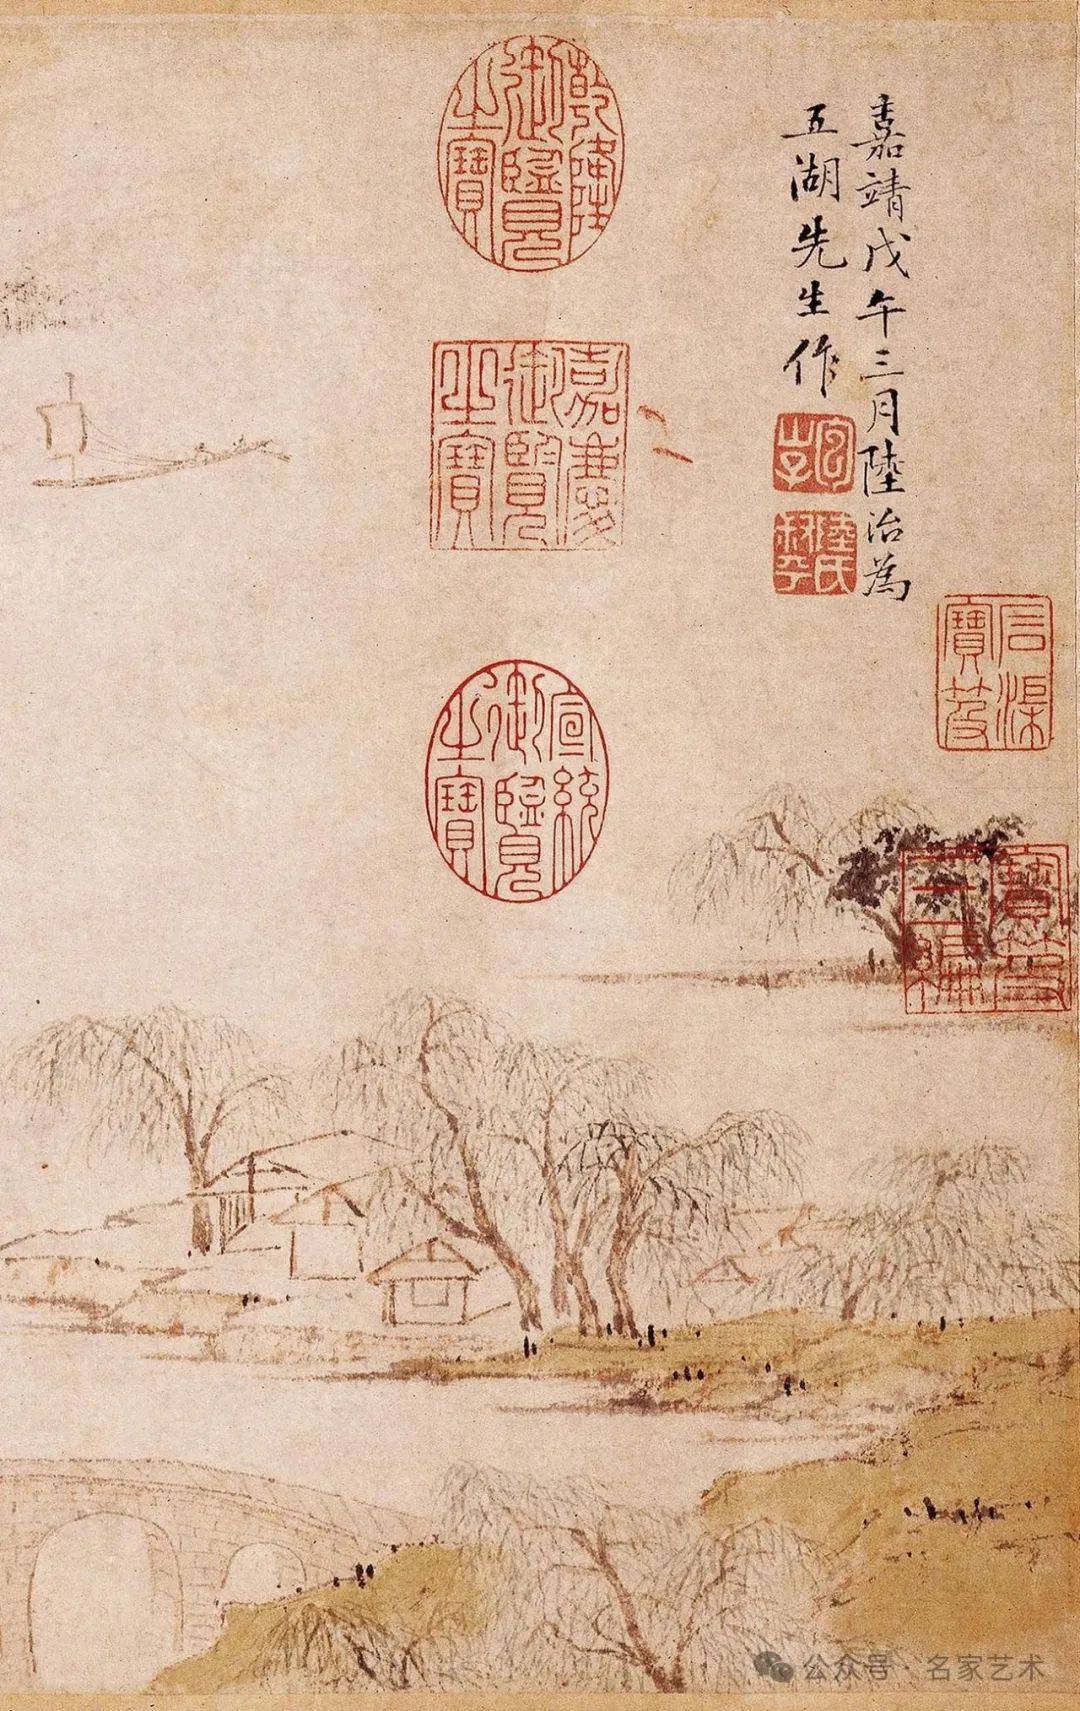 嘉靖戊午三月陸治為
五湖先生作
包山子
陸氏叔平
乾隆御覽之寶
嘉慶御覽之寶
宣統御覽之寶
公众号·名家艺术